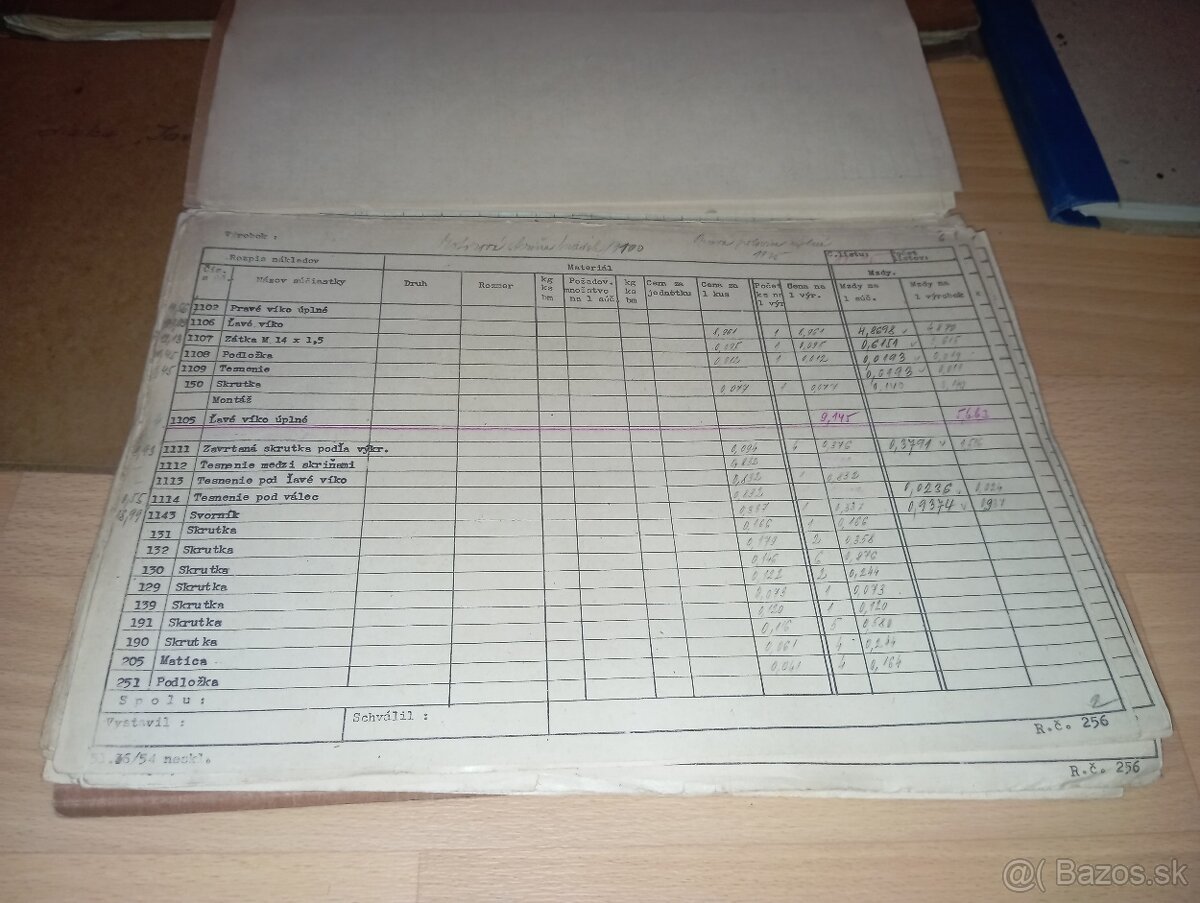 Výrobok :
1100
Rozpis nákladov Materiál Č.listu: Počet listov:
Mzdy.
Čís. Názov súčiastky Druh Rozmer kg ks bm Požadov. množstvo na 1 súč. kg ks bm Cena za jednotku Cena za 1 kus Počet ks na 1 výr Cena na 1 výr. Mzdy na 1 súč. Mzdy na 1 výrobok
1102 Pravé viko úplné
1106 Ľavé viko 1 4,8698
1107 Zátka M 14 x 1,5 0,095 1 0,095 0,6151
1108 Podložka 0,012 1 0,012 0,0193
1109 Tesnenie 0,0193
150 Skrutka 0,077 1 0,077 0,140
Montáž
1105 Ľavé viko úplné 9,145 5,663
1111 Zavrtaná skrutka podľa výkr. 0,094 4 0,376 0,3791
1112 Tesnenie medzi skriňami 0,832
1113 Tesnenie pod Ľavé viko 0,832 1 0,832
1114 Tesnenie pod válec 0,832 0,0236 0,024
1143 Svorník 0,331 1 0,331 0,9374
131 Skrutka 0,166 1 0,166
132 Skrutka 0,179 2 0,358
130 Skrutka 0,146 6 0,876
129 Skrutka 0,122 2 0,244
139 Skrutka 0,073 1 0,073
191 Skrutka 0,120 1 0,120
190 Skrutka 0,116 5 0,580
205 Matica 0,061 4 0,244
251 Podložka 0,041 4 0,164
Spolu:
Vystavil : Schválil :
R.č. 256
36/54 neskl.
R.č. 256
@( Bazos.sk